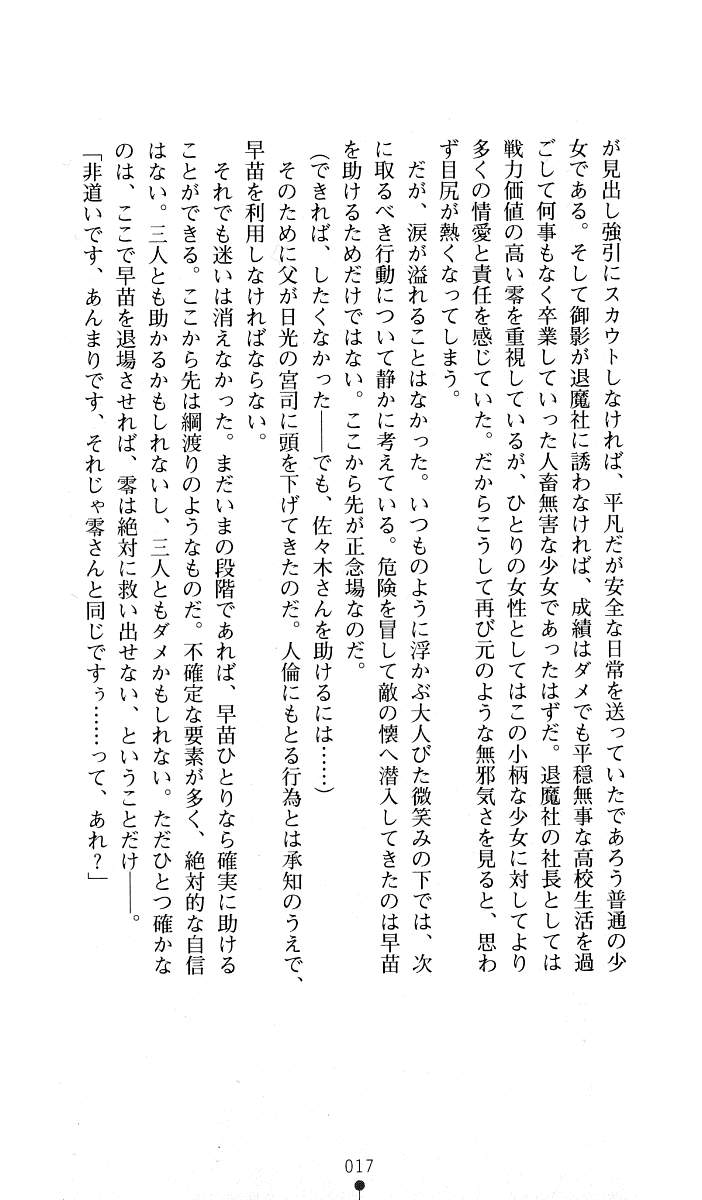 が見出し強引にスカウトしなければ、平凡だが安全な日常を送っていたであろう普通の少
女である。そして御影が退魔社に誘わなければ、成績はダメでも平穏無事な高校生活を過
ごして何事もなく卒業していった人畜無害な少女であったはずだ。退魔社の社長としては
戦力価値の高い零を重視しているが、ひとりの女性としてはこの小柄な少女に対してより
多くの情愛と責任を感じていた。だからこうして再び元のような無邪気さを見ると、思わ
ず目尻が熱くなってしまう。
　だが、涙が溢れることはなかった。いつものように浮かぶ大人びた微笑みの下では、次
に取るべき行動について静かに考えている。危険を冒して敵の懐へ潜入してきたのは早苗
を助けるためだけではない。ここから先が正念場なのだ。
（できれば、したくなかった――でも、佐々木さんを助けるには……）
　そのために父が日光の宮司に頭を下げてきたのだ。人倫にもとる行為とは承知のうえで、
早苗を利用しなければならない。
　それでも迷いは消えなかった。まだいまの段階であれば、早苗ひとりなら確実に助ける
ことができる。ここから先は綱渡りのようなものだ。不確定な要素が多く、絶対的な自信
はない。三人とも助かるかもしれないし、三人ともダメかもしれない。ただひとつ確かな
のは、ここで早苗を退場させれば、零は絶対に救い出せない、ということだけ――。
「非道いです、あんまりです、それじゃ零さんと同じですぅ……って、あれ？」
017